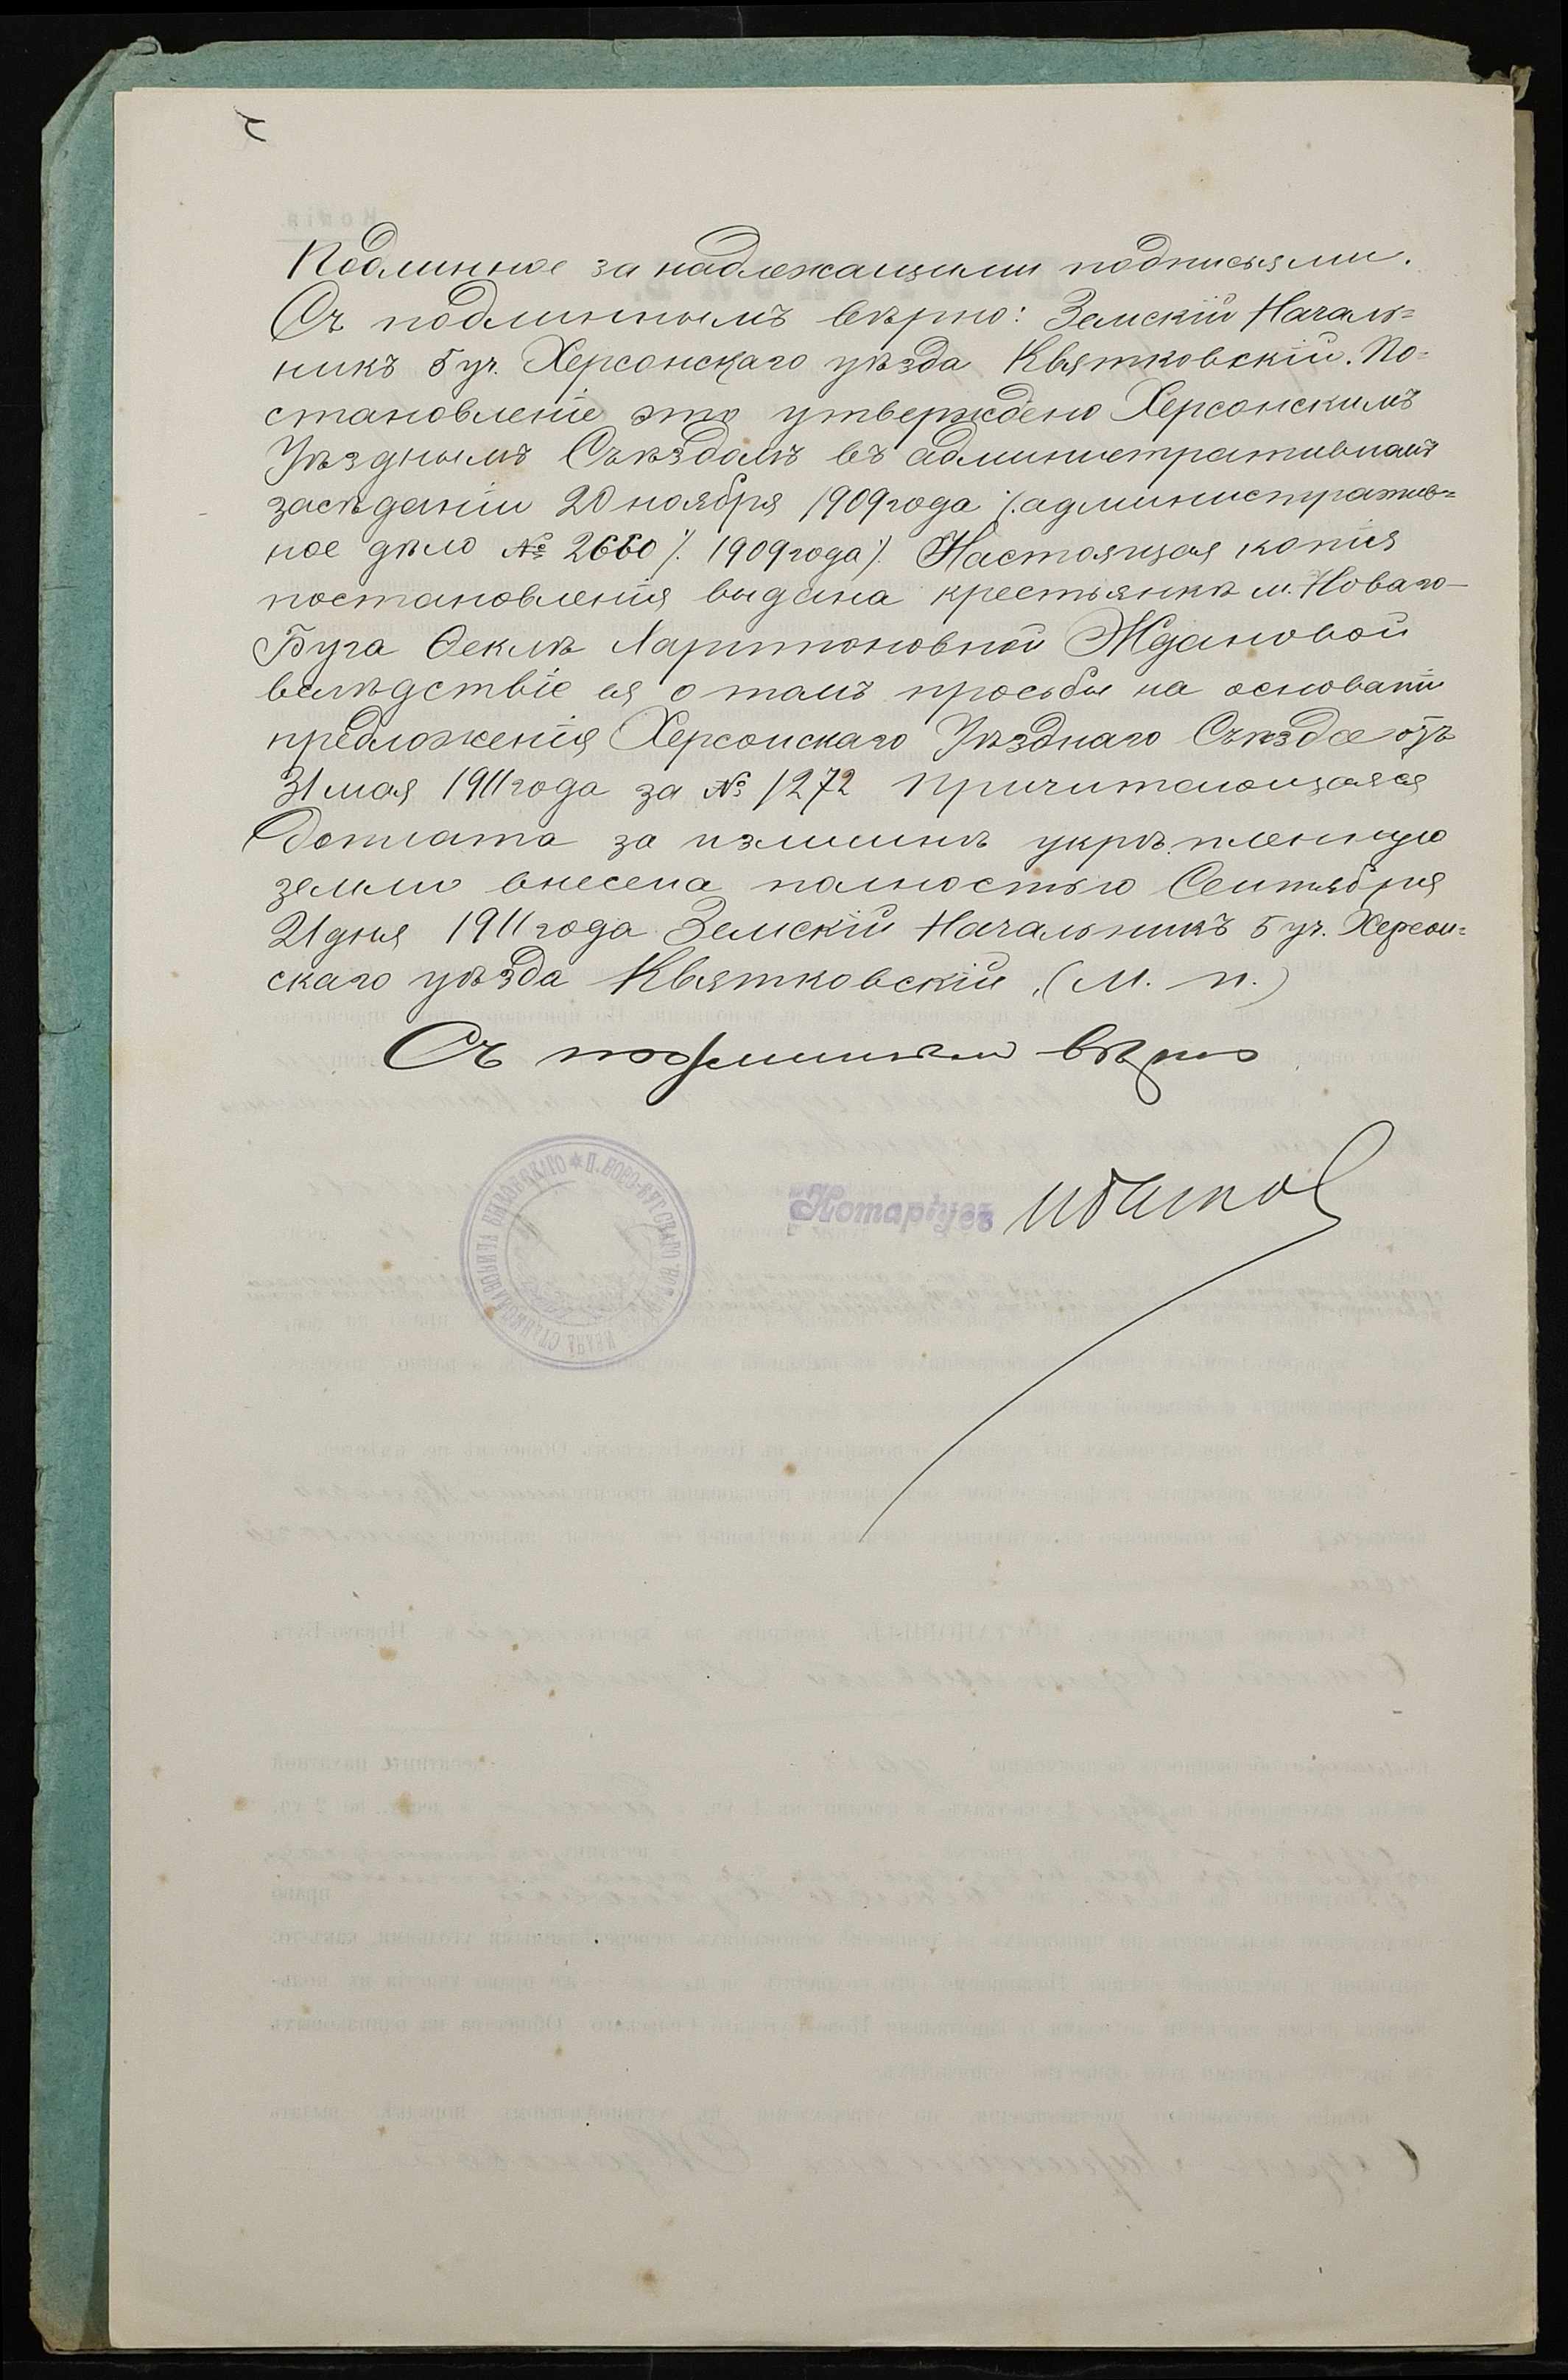 Подлинное за надлежащими подписями.
Съ подлиннымъ вѣрно: Земскій Началь=
никъ 5 уч. Херсонскаго уѣзда Квятковскій. По=
становленіе это утверждено Херсонскимъ
Уѣзднымъ Съѣздомъ въ административномъ
засѣданіи 20 ноября 1909 года /. административ=
ное дѣло № 2660 /. 1909 года /. Настоящая копія
постановленія выдана крестьянкѣ м. Новаго-
Буга Ѳеклѣ Харитоновной Ждановой
вслѣдствіе ея о томъ просьбы на основаніи
предложенія Херсонскаго Уѣзднаго Съѣзда отъ
31 мая 1911 года за № 1272 Причитающаяся
доплата за излишнѣ укрѣпленную
землю внесена полностью Сентября
21 дня 1911 года Земскій Начальникъ 5 уч. Херсон=
скаго уѣзда Квятковскій. (М. п.)
Съ подлиннымъ вѣрно
Нотаріусъ